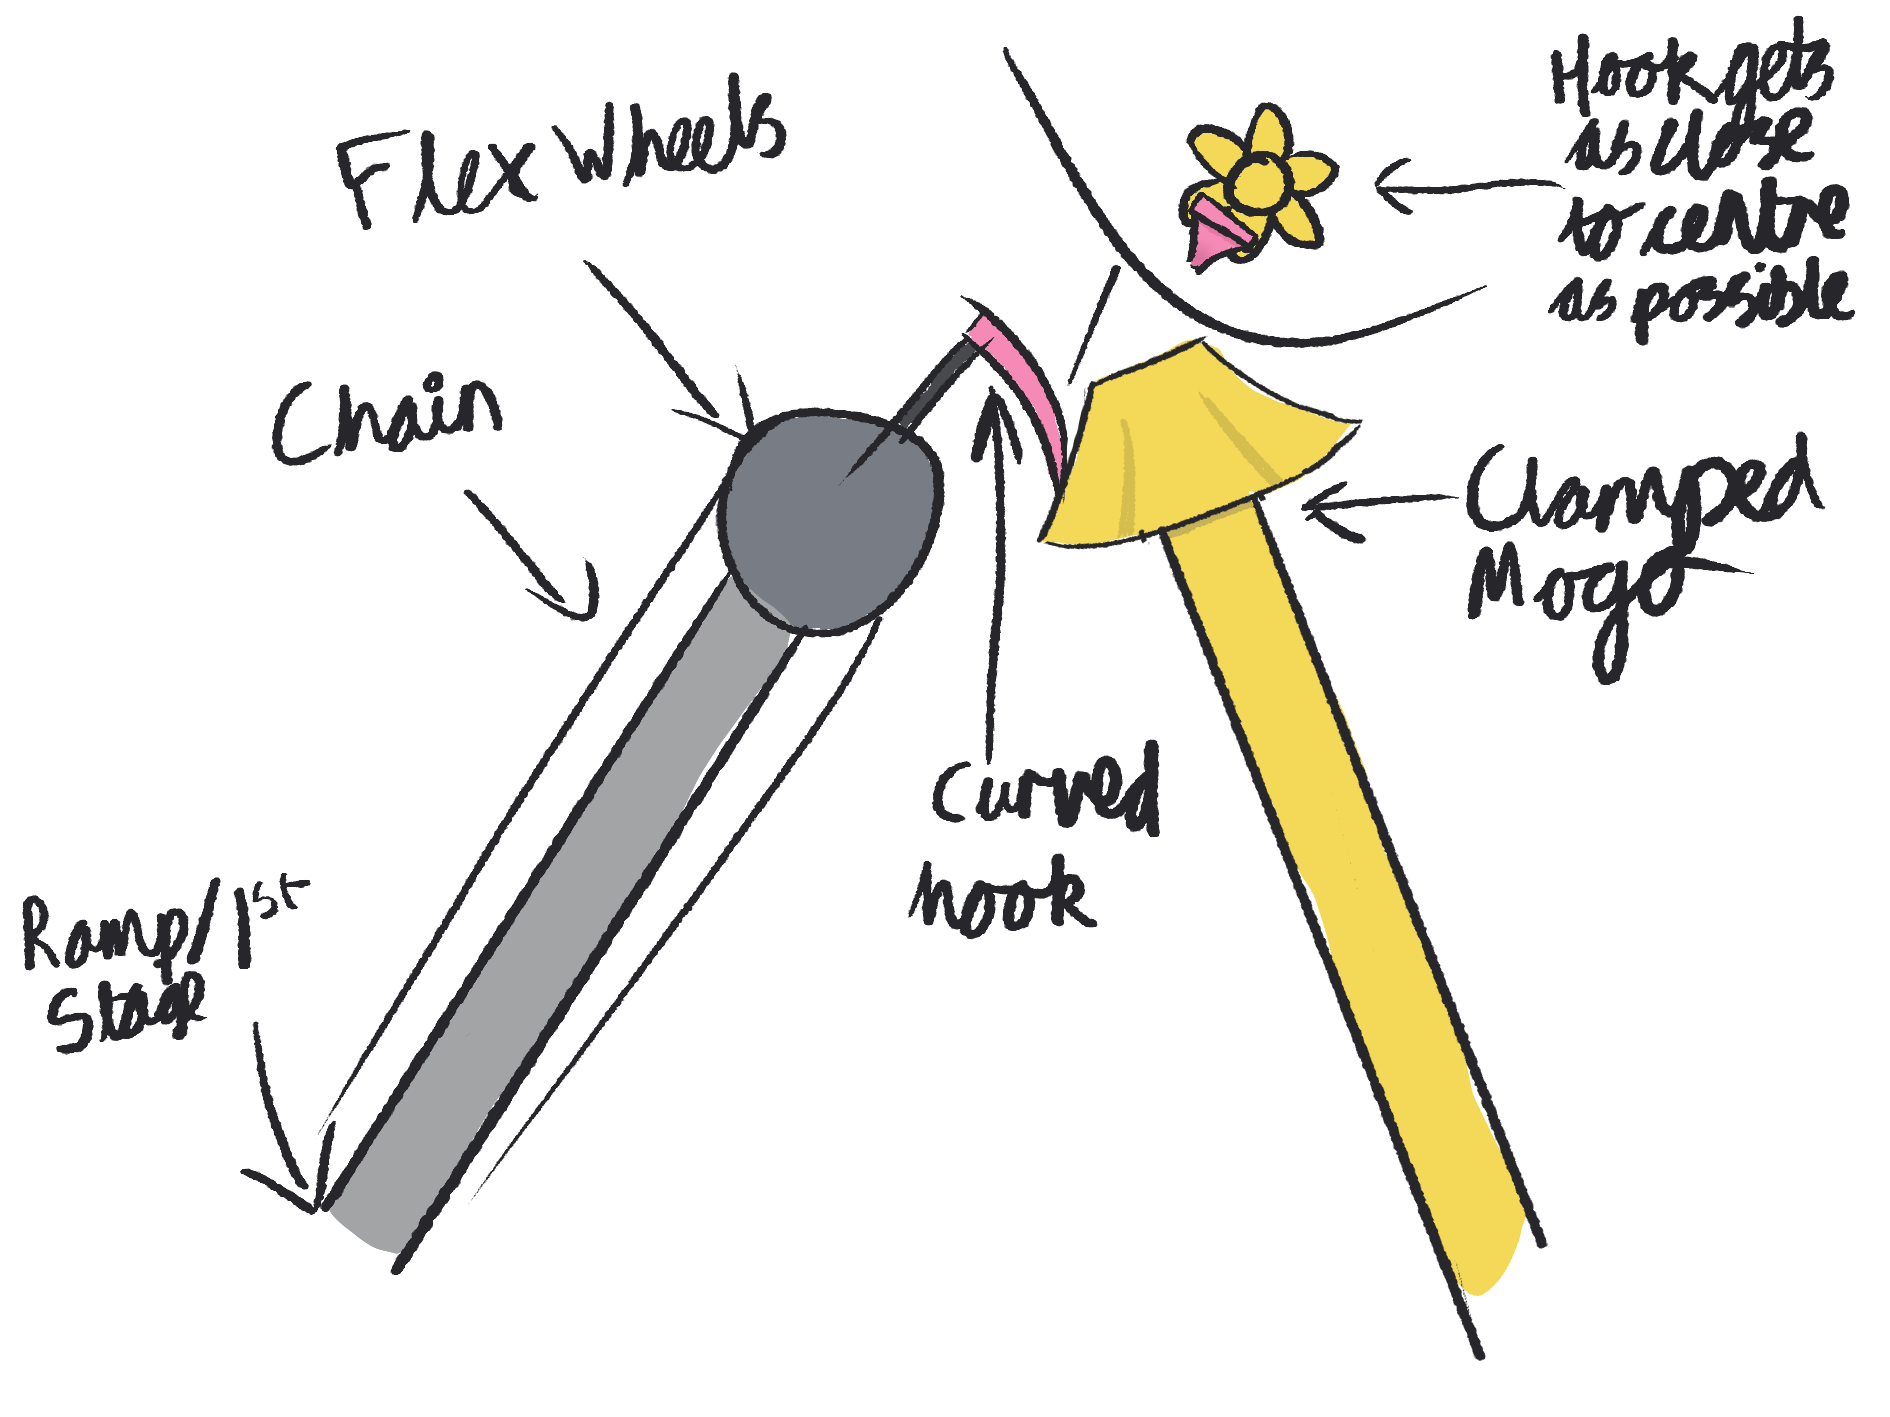 Flex Wheels
Hook gets
as close
to centre
as possible
Chain
Clamped
Mogo
Curved
hook
Ramp/1st
Stage